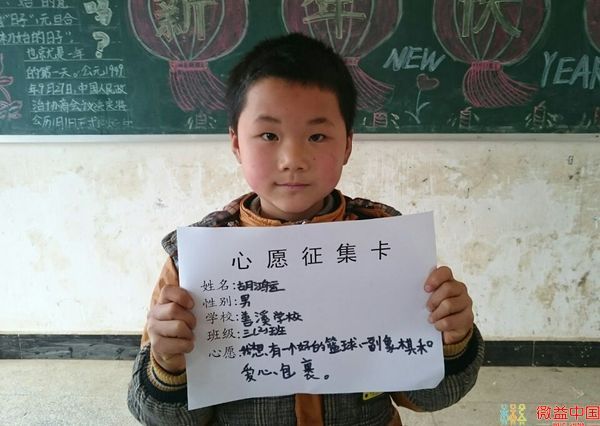 “节”,元旦合
吗?
也就是一年
的第一天。公元1949
年9月27日,中国人民政
治协商会议决定
新年快
NEW
YEAR
心愿征集卡
姓名:胡鸿运
性别:男
学校:善溪学校
班级:三(2)班
心愿:我想有一个好的篮球、一副象棋和
爱心包裹。
微益中国